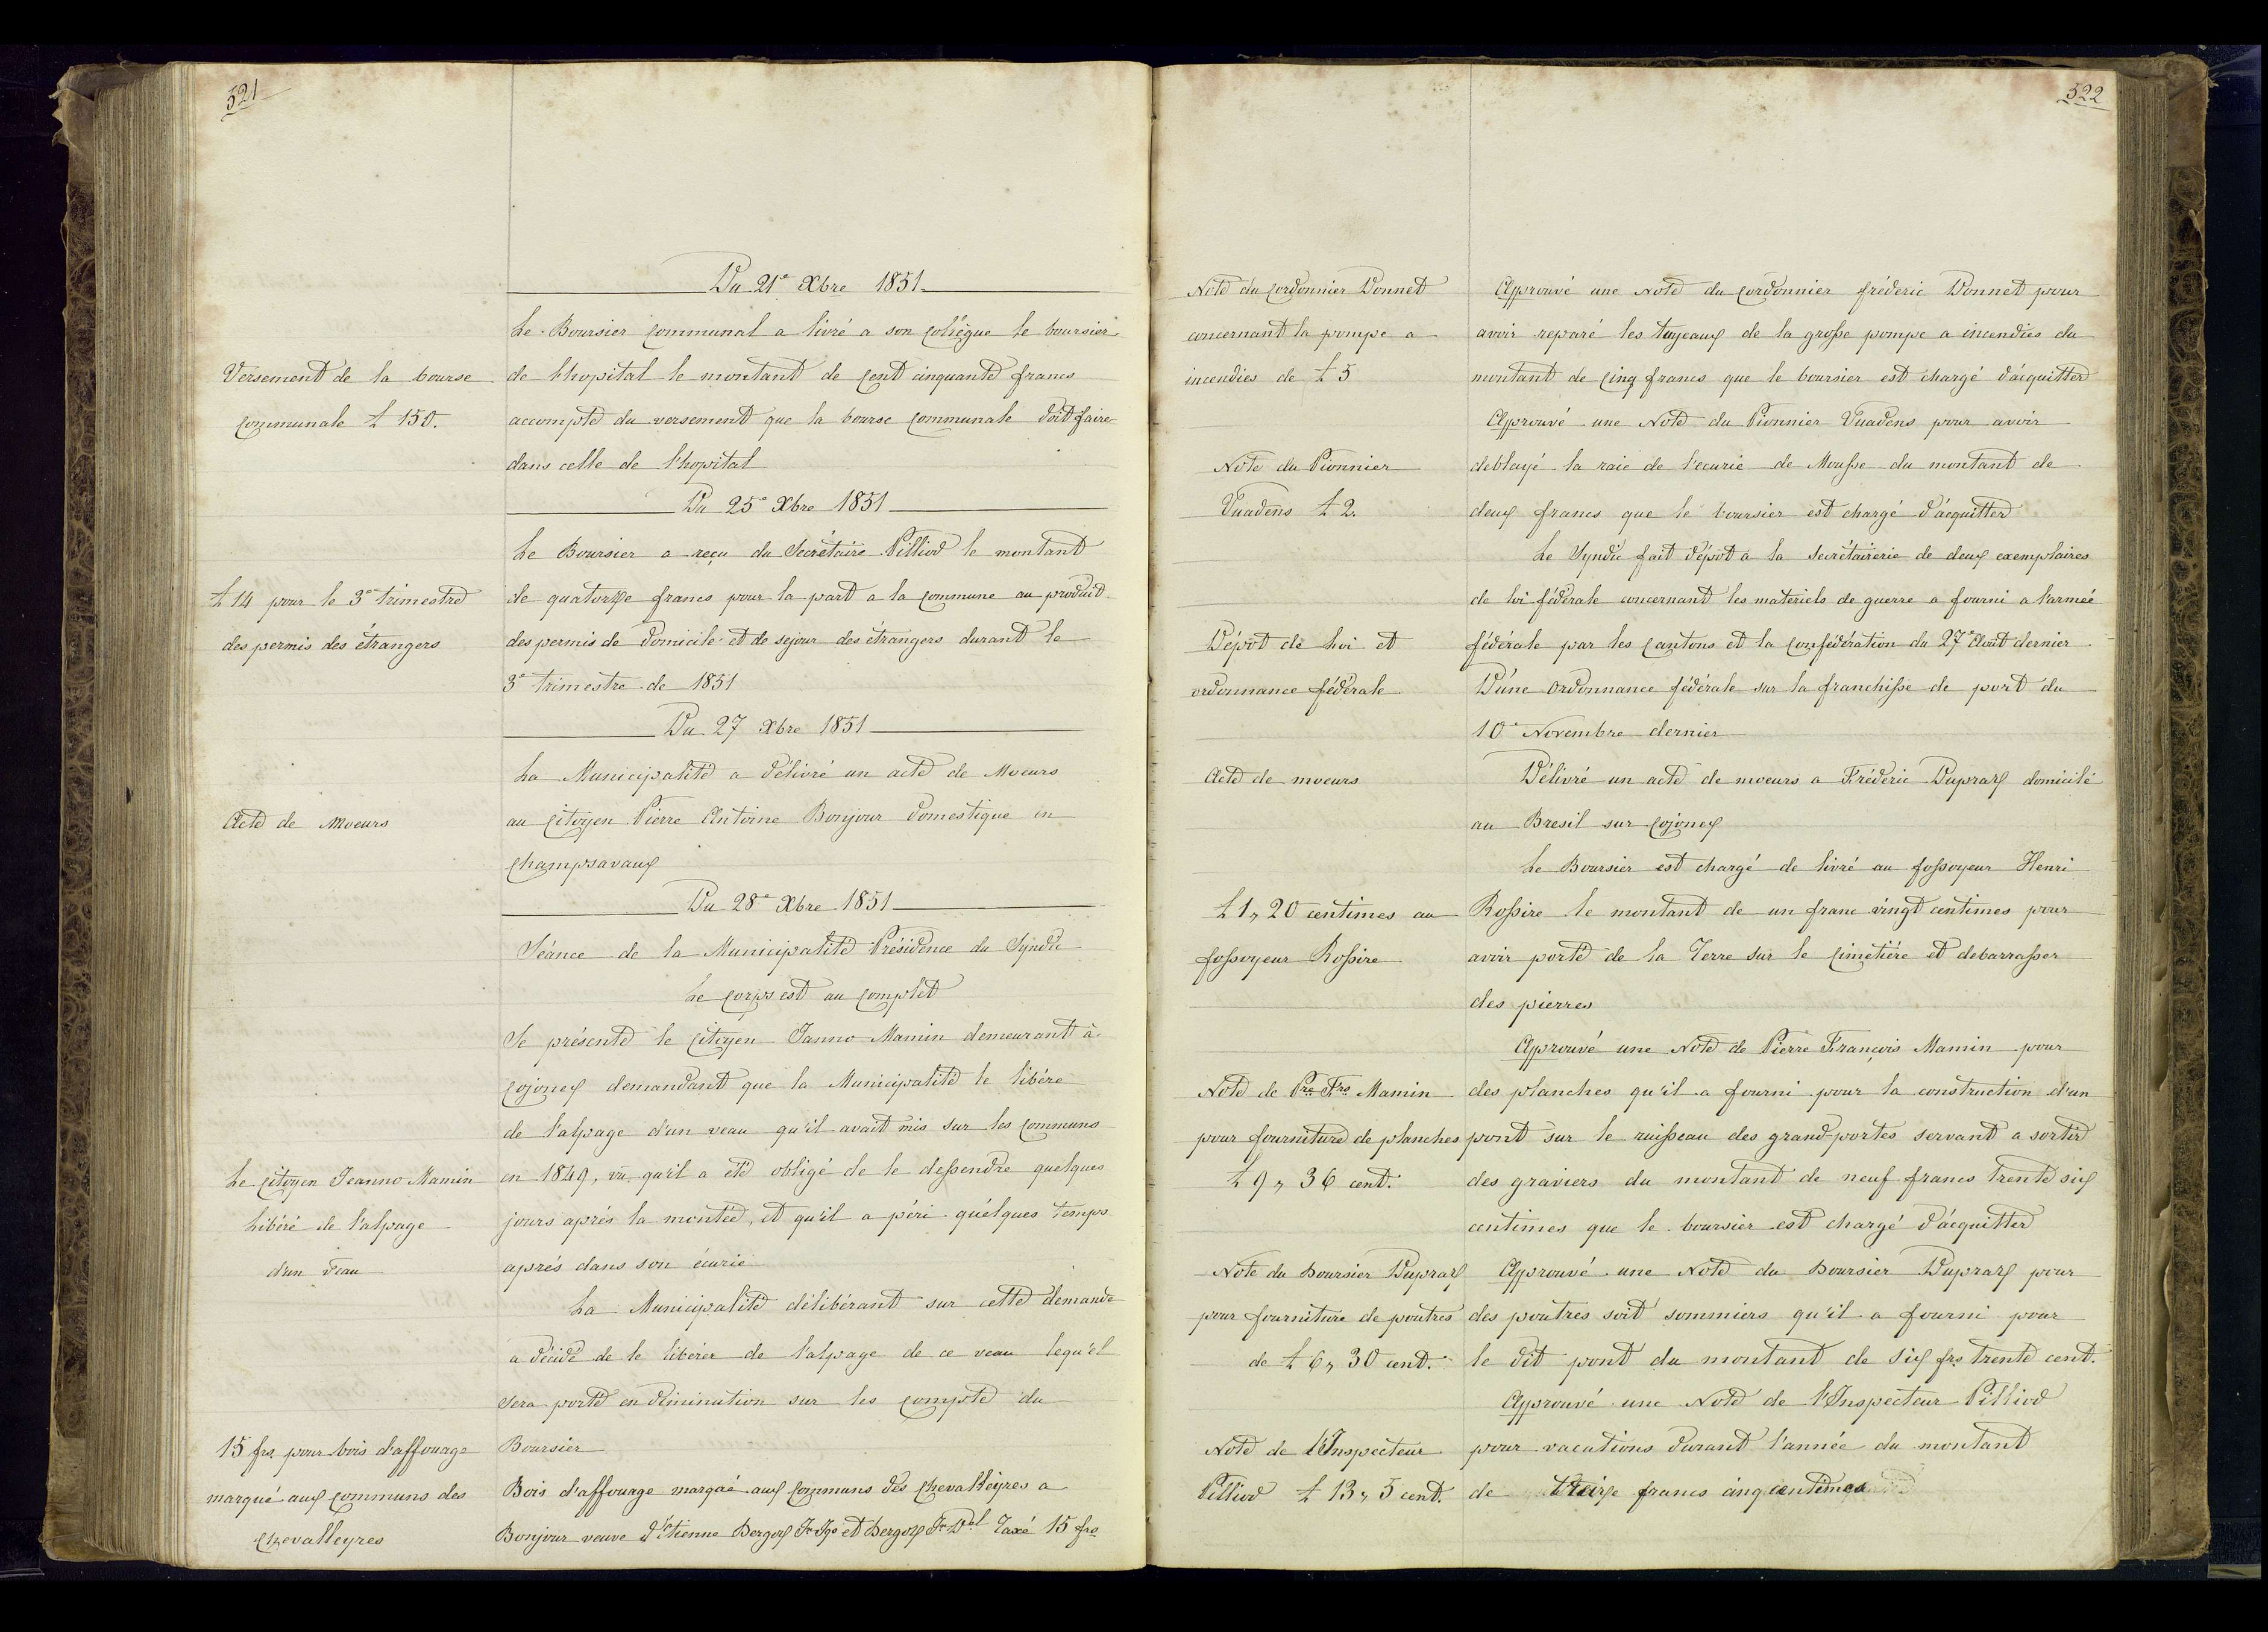 321
Du 21e Xbre 1851
Le Boursier Communal a livré a son Collègue le boursier
Versement de la bourse
de l'hopital le montant de Cent cinquante francs
Communale £ 150.
accompte du versement que la bourse Communale doit faire
dans celle de l'hopital
Du 25e Xbre 1851
Le Boursier a reçu du Secrétaire Pilliod le montant
£ 14 pour le 3e trimestre
de quatorze francs pour la part a la Commune au produit
des permis des étrangers
des permis de domicile et de sejour des étrangers durant le
3e trimestre de 1851
Du 27 Xbre 1851
La Municipalité a délivré un acte de Moeurs
Acte de Moeurs
au Citoyen Pierre Antoine Bonjour domestique en
Champsavaux
Du 28e Xbre 1851
Séance de la Municipalité Présidence du Syndic
Le Corps est au Complet
Se présente le Citoyen Janno Mamin demeurant à
Cojonex demandant que la Municipalité le libére
de l'alpage d'un veau qu'il avait mis sur les Communs
Le Citoyen Jeanno Mamin
en 1849, vu qu'il a été obligé de le dessendre quelques
Libéré de l'alpage
jours aprés la montée, et qu'il a péri quélques temps
d'un veau
aprés dans son écurie
La Municipalité délibérant sur cette demande
a décidé de le libérer de l'alpage de ce veau lequ'el
sera porté en diminution sur les Compte du
15 frs pour bois d'affouage
Boursier
marqué aux Communs des
Bois d'affouage marqué aux Communs dès Chevalleyres a
Chevalleyres
Bonjour veuve d'Etienne Dergox Jn Jqs et Dergox Jn Dbl Taxé 15 frs
322
Note du Cordonnier Donnet
Approuvé une Note du Cordonnier fréderic Donnet pour
concernant la pompe a
avoir reparé les tuyeaux de la grosse pompe a incendies du
incendies de £ 5
montant de Cinq francs que le boursier est chargé d'acquitter
Approuvé une Note du Pionnier Vuadens pour avoir
Note du Pionnier
deblayé la raie de l'ecurie de Mousse du montant de
Vuadens £ 2.
deux francs que le boursier est chargé d'acquitter
Le Syndic fait dépot a la Secrétairerie de deux exemplaires
de loi fédérale concernant les materiels de guerre a fourni a l'armée
Dépot de loi et
fédérale par les Cantons et la Confédération du 27e Août dernier
ordonnance fédérale
D'une Ordonnance fédérale sur la franchisse de port du
10e Novembre dernier
Acte de moeurs
Délivré un acte de moeurs a Fréderic Dupraz domicilé
au Bresil sur Cojonex
Le Boursier est chargé de livré au fossoyeur Henri
£ 1,, 20 centimes au
Rossire le montant de un franc vingt centimes pour
fossoyeur Rossire
avoir porté de la Terre sur le Cimetiére et debarrasser
des pierres
Approuvé une Note de Pierre François Mamin pour
Note de Pre Frs Mamin
des planches qu'il a fourni pour la construction d'un
pour fourniture de planches
pont sur le ruisseau des grand-portes servant a sortir
£ 9,, 36 cent.
des graviers du montant de neuf francs trente six
centimes que le boursier est chargé d'acquitter
Note du boursier Dupraz
Approuvé une Note du boursier Dupraz pour
pour fourniture de poutres
des poutres soit sommiers qu'il a fourni pour
de £ 6,, 30 cent.
le dit pont du montant de six frs trente cent.
Approuvé une Note de l'Inspecteur Pilliod
Note de l'Inspecteur
pour vacations durant l'année du montant
Pilliod £ 13,, 5 cent.
de treize francs cinq centimes